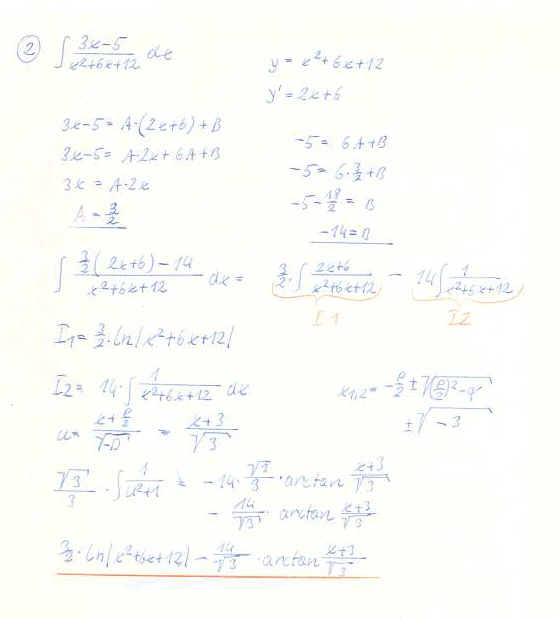 ② ∫ (3x-5)/(x²+6x+12) dx
y = x²+6x+12
y' = 2x+6
3x-5 = A·(2x+6)+B
3x-5 = A·2x + 6A+B
3x = A·2x
A = 3/2
-5 = 6A+B
-5 = 6·3/2+B
-5-18/2 = B
-14=B
∫ (3/2(2x+6)-14)/(x²+6x+12) dx = 3/2·∫ (2x+6)/(x²+6x+12) - 14∫ 1/(x²+6x+12)
I1 I2
I1 = 3/2·ln|x²+6x+12|
I2 = 14·∫ 1/(x²+6x+12) dx
u = (x+p/2)/√-D = (x+3)/√3
x1,2 = -p/2 ± √(p/2)²-q
±√-3
√3/3 · ∫ 1/(u²+1) = -14·√3/3·arctan (x+3)/√3
- 14/√3 · arctan (x+3)/√3
3/2·ln|x²+6x+12| - 14/√3 · arctan (x+3)/√3